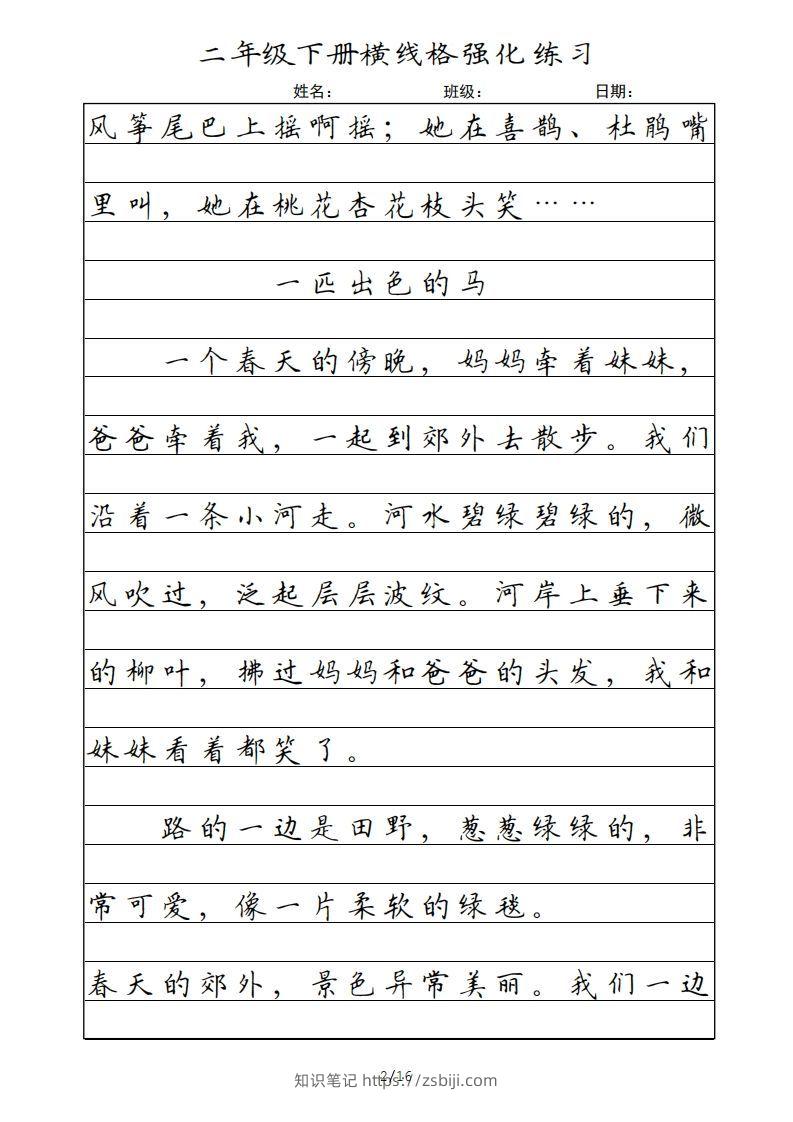 二年级下册横线格强化练习
姓名： 班级： 日期：
风筝尾巴上摇啊摇；她在喜鹊、杜鹃嘴
里叫，她在桃花杏花枝头笑……
一匹出色的马
一个春天的傍晚，妈妈牵着妹妹，
爸爸牵着我，一起到郊外去散步。我们
沿着一条小河走。河水碧绿碧绿的，微
风吹过，泛起层层波纹。河岸上垂下来
的柳叶，拂过妈妈和爸爸的头发，我和
妹妹看着都笑了。
路的一边是田野，葱葱绿绿的，非
常可爱，像一片柔软的绿毯。
春天的郊外，景色异常美丽。我们一边
2/16
知识笔记 https://zsbiji.com